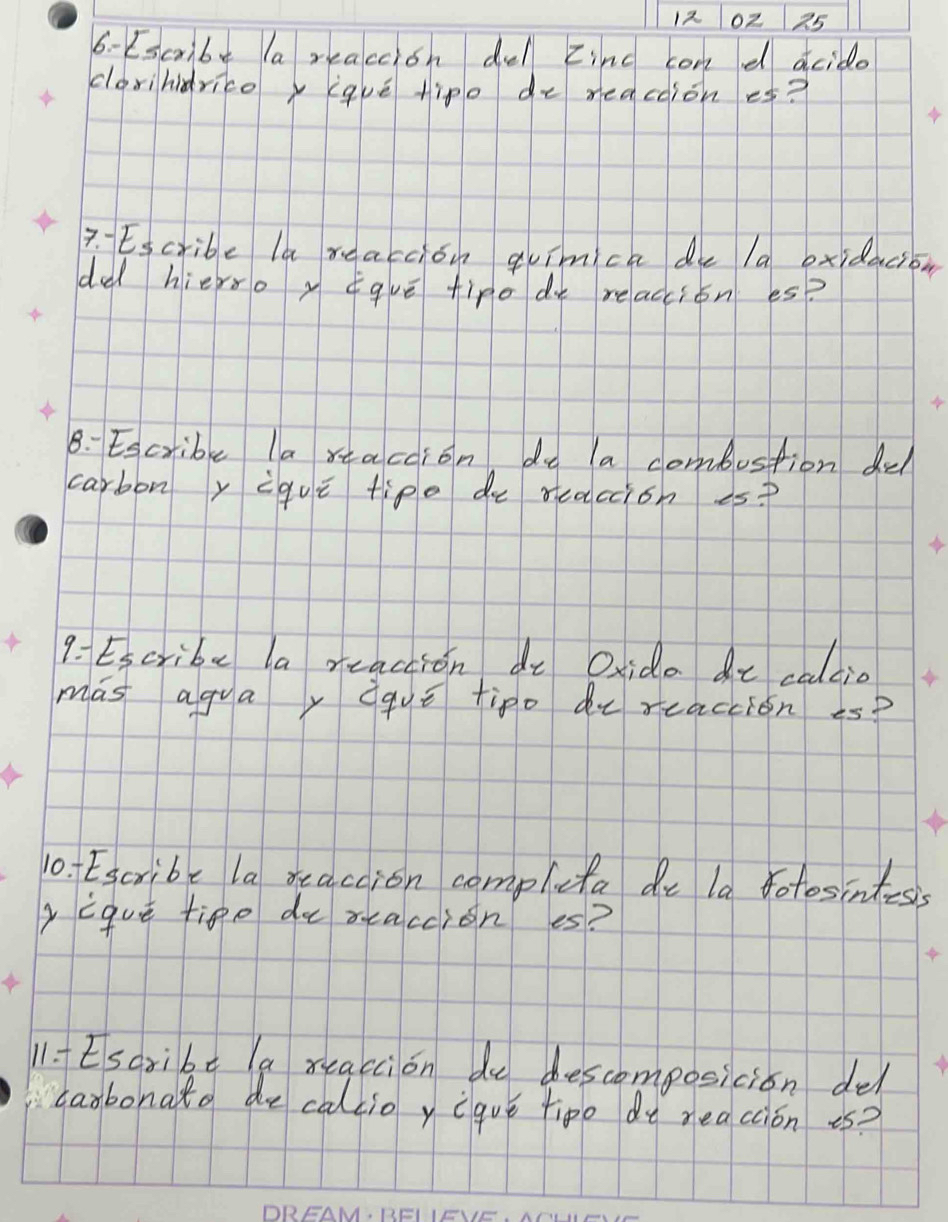 12 02 25
6.- Escribe la reacción del Zinc con el ácido
clorihidrico y ¿qué tipo de reacción es?
7.- Escribe la reacción química de la oxidación
del hierro y ¿qué tipo de reacción es?
8.- Escribe la reacción de la combustion del
carbon y ¿qué tipo de reacción es?
9.- Escribe la reacción de Oxido de calcio
más agua y ¿qué tipo de reacción es?
10.- Escribe la reacción completa de la fotosíntesis
y ¿qué tipo de reacción es?
11.- Escribe la reacción de descomposición del
carbonato de calcio y ¿qué tipo de reacción es?
DREAM · BELIEVE · ACHIEVE